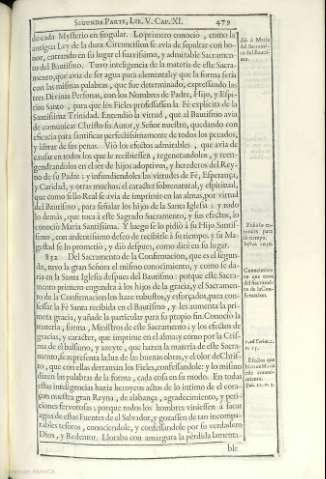 SEGUNDA PARTE, LIB. V. CAP. XI. 479
de cada Mysterio en singular. Lo primero conoció, como la
antigua Ley de la dura Circuncision se avia de sepultar con ho-
nor, entrando en su lugar el suavissimo, y admirable Sacramen-
to del Bautismo. Tuvo inteligencia de la materia de este Sacra-
mento, que avia de ser agua pura elemental, y que la forma seria
con las mismas palabras, que fue determinado, expressando las
tres Divinas Personas, con los Nombres de Padre, Hijo, y Espi-
ritu Santo, para que los Fieles professassen la Fé explicita de la
Santissima Trinidad. Entendió la virtud, que al Bautismo avia
de comunicar Christo su Autor, y Señor nuestro, quedando con
eficacia para santificar perfectissimamente de todos los pecados,
y librar de sus penas. Vió los efectos admirables, que avia de
causar en todos los que le recibiessen, regenerandolos, y reen-
gendrandolos en el ser de hijos adoptivos, y herederos del Rey-
no de su Padre; y infundiendoles las virtudes de Fé, Esperança,
y Caridad, y otras muchas; el caracter sobrenatural, y espiritual,
que como sello Real se avia de imprimir en las almas, por virtud
del Bautismo, para señalar los hijos de la Santa Iglesia: y todo
lo demás, que toca á este Sagrado Sacramento, y sus efectos, lo
conoció Maria Santissima. Y luego se lo pidió á su Hijo Santis-
simo, con ardentissimo deseo de recibirle á su tiempo, y su Ma-
gestad se lo prometió, y dió despues, como diré en su lugar.
832 Del Sacramento de la Confirmacion, que es el segun-
do, tuvo la gran Señora el mismo conocimiento, y como se da-
ria en la Santa Iglesia despues del Bautismo: porque este Sacra-
mento primero engendra á los hijos de la gracia, y el Sacramen-
to de la Confirmacion los haze robustos, y esforçados, para con-
fessar la Fé Santa recibida en el Bautismo, y les aumenta la pri-
mera gracia, y añade la particular para su propio fin. Conoció la
materia, forma, Ministros de este Sacramento; y los efectos de
gracias, y caracter, que imprime en el alma; y como por la Crís-
ma de balsamo, y azeyte, que hazen la materia de este Sacra-
mento, se representa la luz de las buenas obras, y el olor de Chris-
to, que con ellas derramán los Fieles, confessandole: y lo mismo
dizen las palabras de la forma, cada cosa en su modo. En todas
estas inteligencias hazia heroycos actos de lo intimo del cora-
çon nuestra gran Reyna, de alabança, agradecimiento, y peti-
ciones fervorosas; porque todos los hombres viniessen á sacar
agua de estas Fuentes del Salvador, y gozassen de tan incompa-
rables tesoros, conociendole, y confessandole por su verdadero
Dios, y Redentor. Lloraba con amargura la pérdida lamenta-
ble